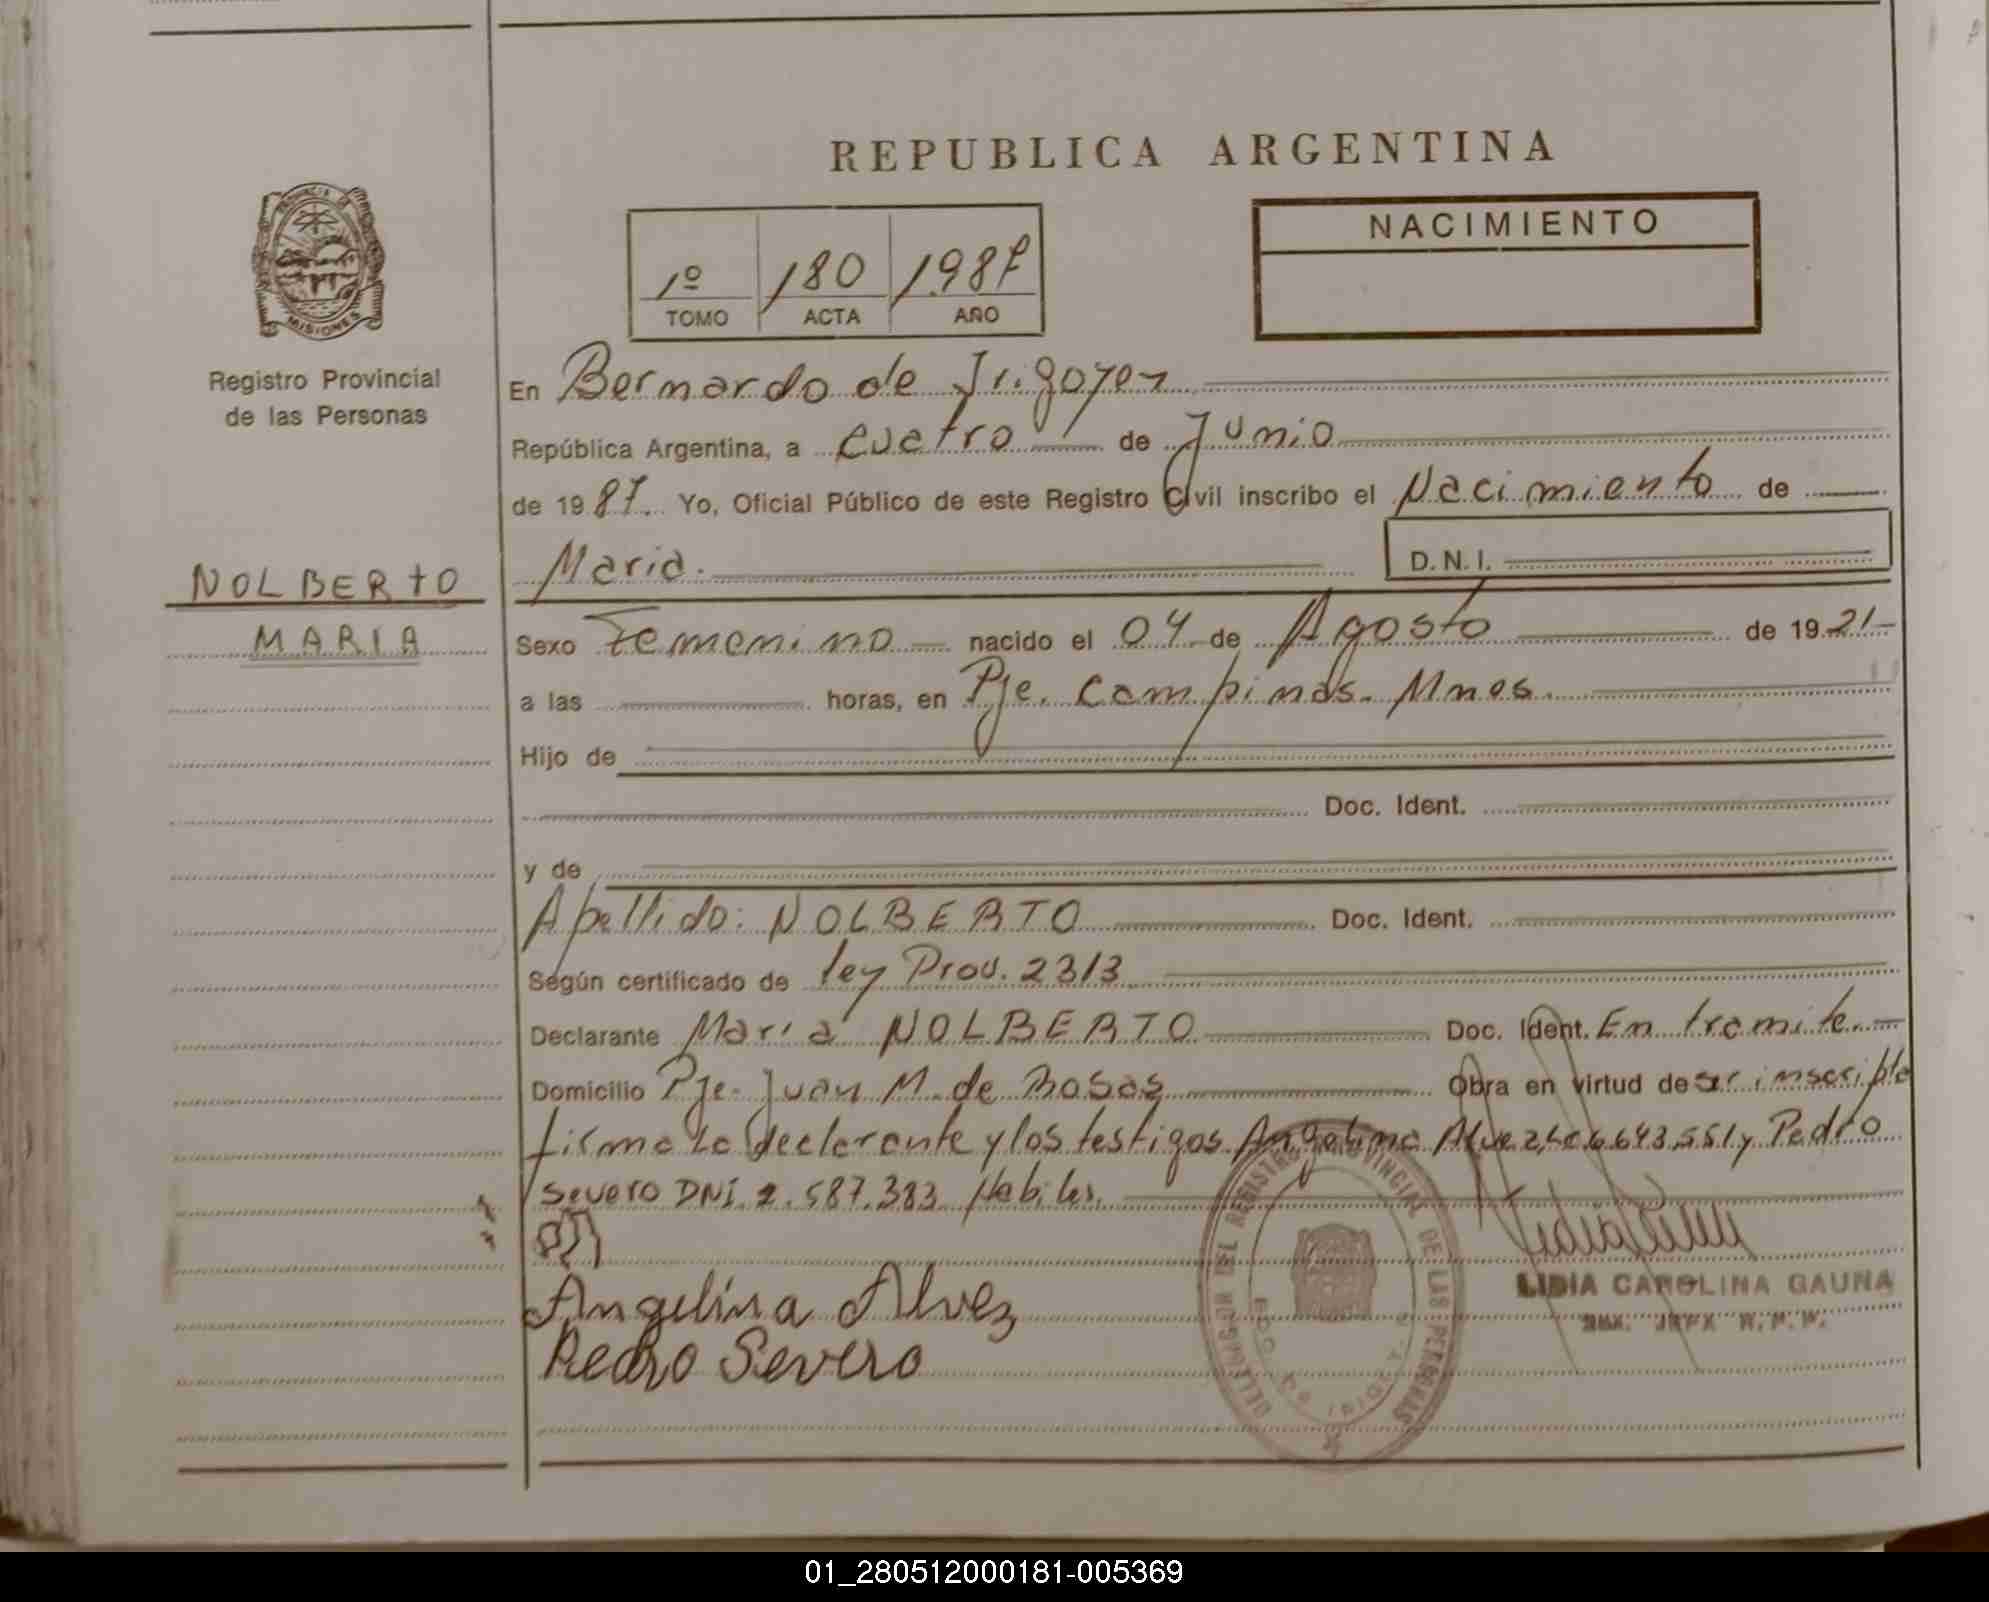 REPUBLICA ARGENTINA
PROVINCIA DE
MISIONES
Registro Provincial
de las Personas
NOLBERTO
MARIA
1º 180 1987
TOMO ACTA AÑO
NACIMIENTO
En Bernardo de Irigoyen
República Argentina, a cuatro de Junio
de 1987. Yo, Oficial Público de este Registro Civil inscribo el Nacimiento de
Maria. D.N.I.
Sexo Femenino nacido el 04 de Agosto de 1921
a las horas, en Pje. Campinas. Mnes.
Hijo de
Doc. Ident.
y de
Apellido: NOLBERTO Doc. Ident.
Según certificado de ley Prov. 2313
Declarante Maria NOLBERTO Doc. Ident. En tramite.
Domicilio Pje. Juan M. de Rosas Obra en virtud de ser inscriple
firma La declarante y los testigos Angelina Alvez Lc 6.643.551 y Pedro
Severo DNI. 2.587.383 Habiles.
Angelina Alvez
Pedro Severo
DELEGACION DEL REGISTRO PROVINCIAL DE LAS PERSONAS
LIDIA CAROLINA GAUNA
01_280512000181-005369